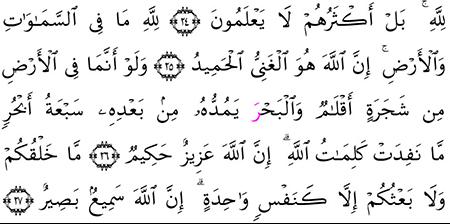 لِلَّهِ ۚ بَلْ أَكْثَرُهُمْ لَا يَعْلَمُونَ ﴿٢٤﴾ لِلَّهِ مَا فِى ٱلسَّمَـٰوَٰتِ
وَٱلْأَرْضِ ۚ إِنَّ ٱللَّهَ هُوَ ٱلْغَنِىُّ ٱلْحَمِيدُ ﴿٢٥﴾ وَلَوْ أَنَّمَا فِى ٱلْأَرْضِ
مِن شَجَرَةٍ أَقْلَـٰمٌ وَٱلْبَحْرَ يَمُدُّهُۥ مِنۢ بَعْدِهِۦ سَبْعَةُ أَبْحُرٍ
مَّا نَفِدَتْ كَلِمَـٰتُ ٱللَّهِ ۗ إِنَّ ٱللَّهَ عَزِيزٌ حَكِيمٌ ﴿٢٦﴾ مَّا خَلْقُكُمْ
وَلَا بَعْثُكُمْ إِلَّا كَنَفْسٍ وَٰحِدَةٍ ۗ إِنَّ ٱللَّهَ سَمِيعٌۢ بَصِيرٌ ﴿٢٧﴾